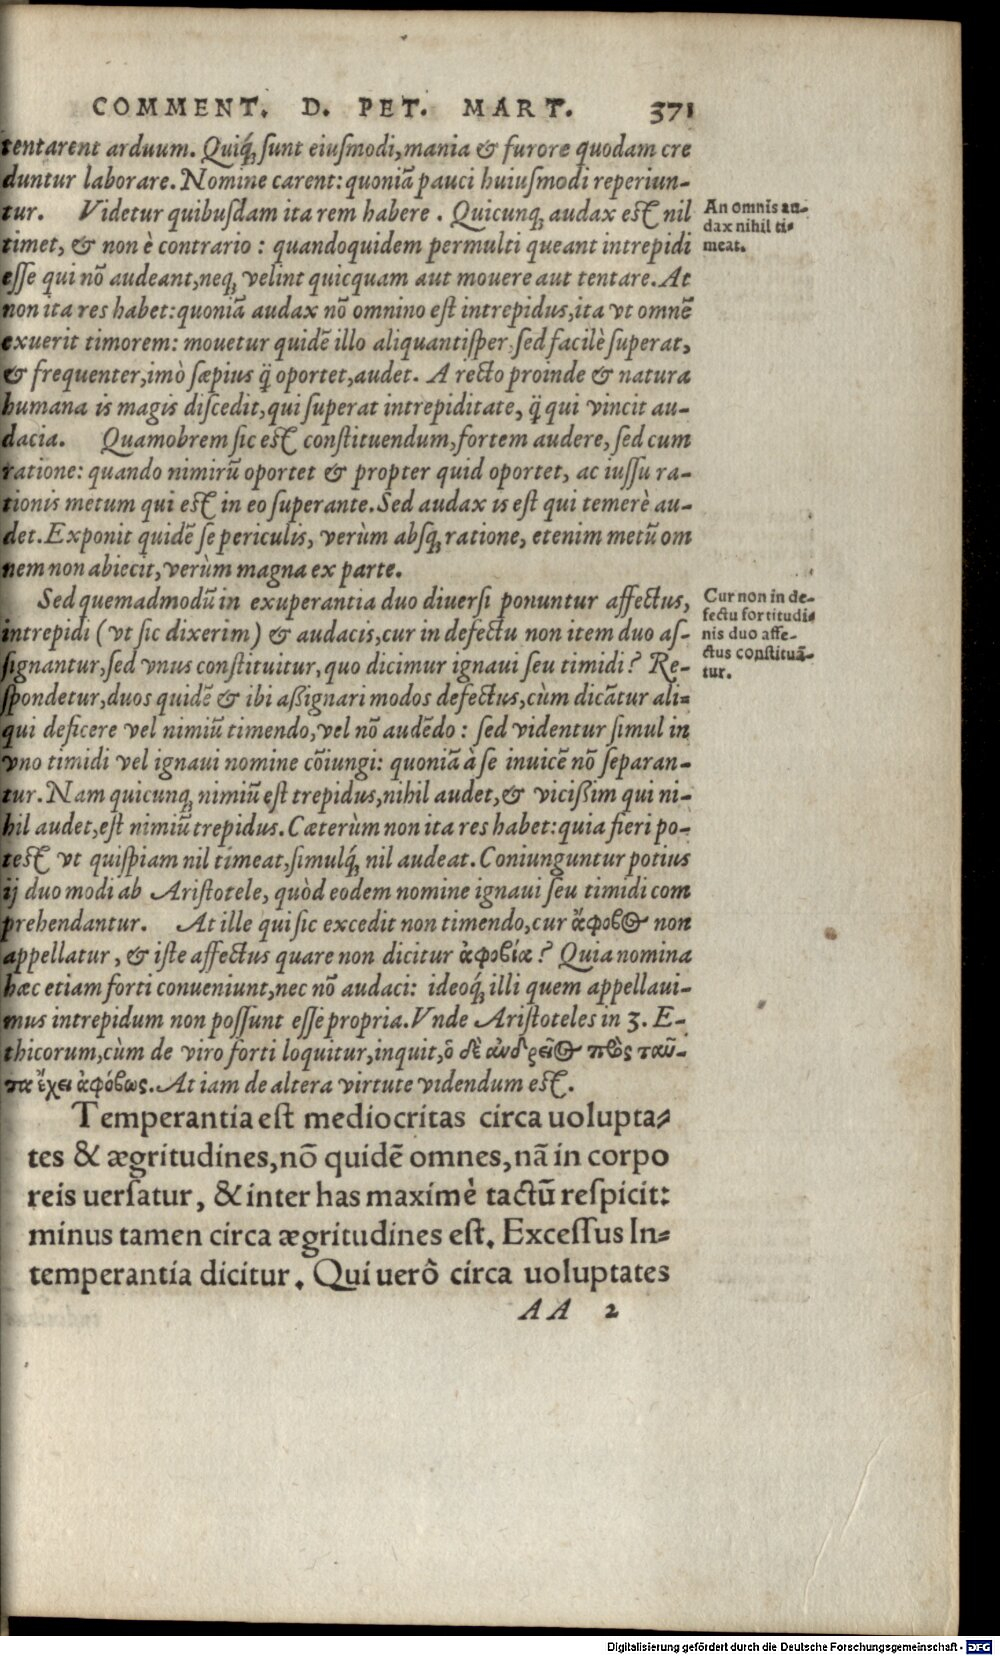 COMMENT. D. PET. MART. 371
tentarent arduum. Quiq́; sunt eiusmodi, mania & furore quodam cre
duntur laborare. Nomine carent: quoniā pauci huiusmodi reperiun-
tur. Videtur quibusdam ita rem habere. Quicunq; audax est nil
timet, & non è contrario: quandoquidem permulti queant intrepidi
esse qui nō audeant, neq; velint quicquam aut mouere aut tentare. At
non ita res habet: quoniā audax nō omnino est intrepidus, ita vt omnē
exuerit timorem: mouetur quidē illo aliquantisper, sed facilè superat,
& frequenter, imò sæpius q̄ oportet, audet. A recto proinde & natura
humana is magis discedit, qui superat intrepiditate, q̄ qui vincit au-
dacia. Quamobrem sic est constituendum, fortem audere, sed cum
ratione: quando nimirū oportet & propter quid oportet, ac iussu ra-
tionis metum qui est in eo superante. Sed audax is est qui temerè au-
det. Exponit quidē se periculis, verùm absq; ratione, etenim metū om
nem non abiecit, verùm magna ex parte.
An omnis au-
dax nihil ti-
meat.
Sed quemadmodū in exuperantia duo diuersi ponuntur affectus,
intrepidi (vt sic dixerim) & audacis, cur in defectu non item duo as-
signantur, sed vnus constituitur, quo dicimur ignaui seu timidi? Re-
spondetur, duos quidē & ibi aßignari modos defectus, cùm dicātur ali-
qui deficere vel nimiū timendo, vel nō audēdo: sed videntur simul in
vno timidi vel ignaui nomine cōiungi: quoniā à se inuicē nō separan-
tur. Nam quicunq; nimiū est trepidus, nihil audet, & vicißim qui ni-
hil audet, est nimiū trepidus. Cæterùm non ita res habet: quia fieri po-
test vt quispiam nil timeat, simulq́; nil audeat. Coniunguntur potius
ij duo modi ab Aristotele, quòd eodem nomine ignaui seu timidi com
prehendantur. At ille qui sic excedit non timendo, cur ἄφοβος non
appellatur, & iste affectus quare non dicitur ἀφοβία? Quia nomina
hæc etiam forti conueniunt, nec nō audaci: ideoq́; illi quem appellaui-
mus intrepidum non possunt esse propria. Vnde Aristoteles in 3. E-
thicorum, cùm de viro forti loquitur, inquit, ὁ δὲ ἀνδρεῖος πῶς ταῦ-
τα ἔχει ἀφόβως. At iam de altera virtute videndum est.
Cur non in de-
fectu fortitudi-
nis duo affe-
ctus constituā-
tur.
Temperantia est mediocritas circa uolupta-
tes & ægritudines, nō quidē omnes, nā in corpo
reis uersatur, & inter has maximè tactū respicit:
minus tamen circa ægritudines est. Excessus In-
temperantia dicitur. Qui uerò circa uoluptates
AA 2
Digitalisierung gefördert durch die Deutsche Forschungsgemeinschaft - DFG